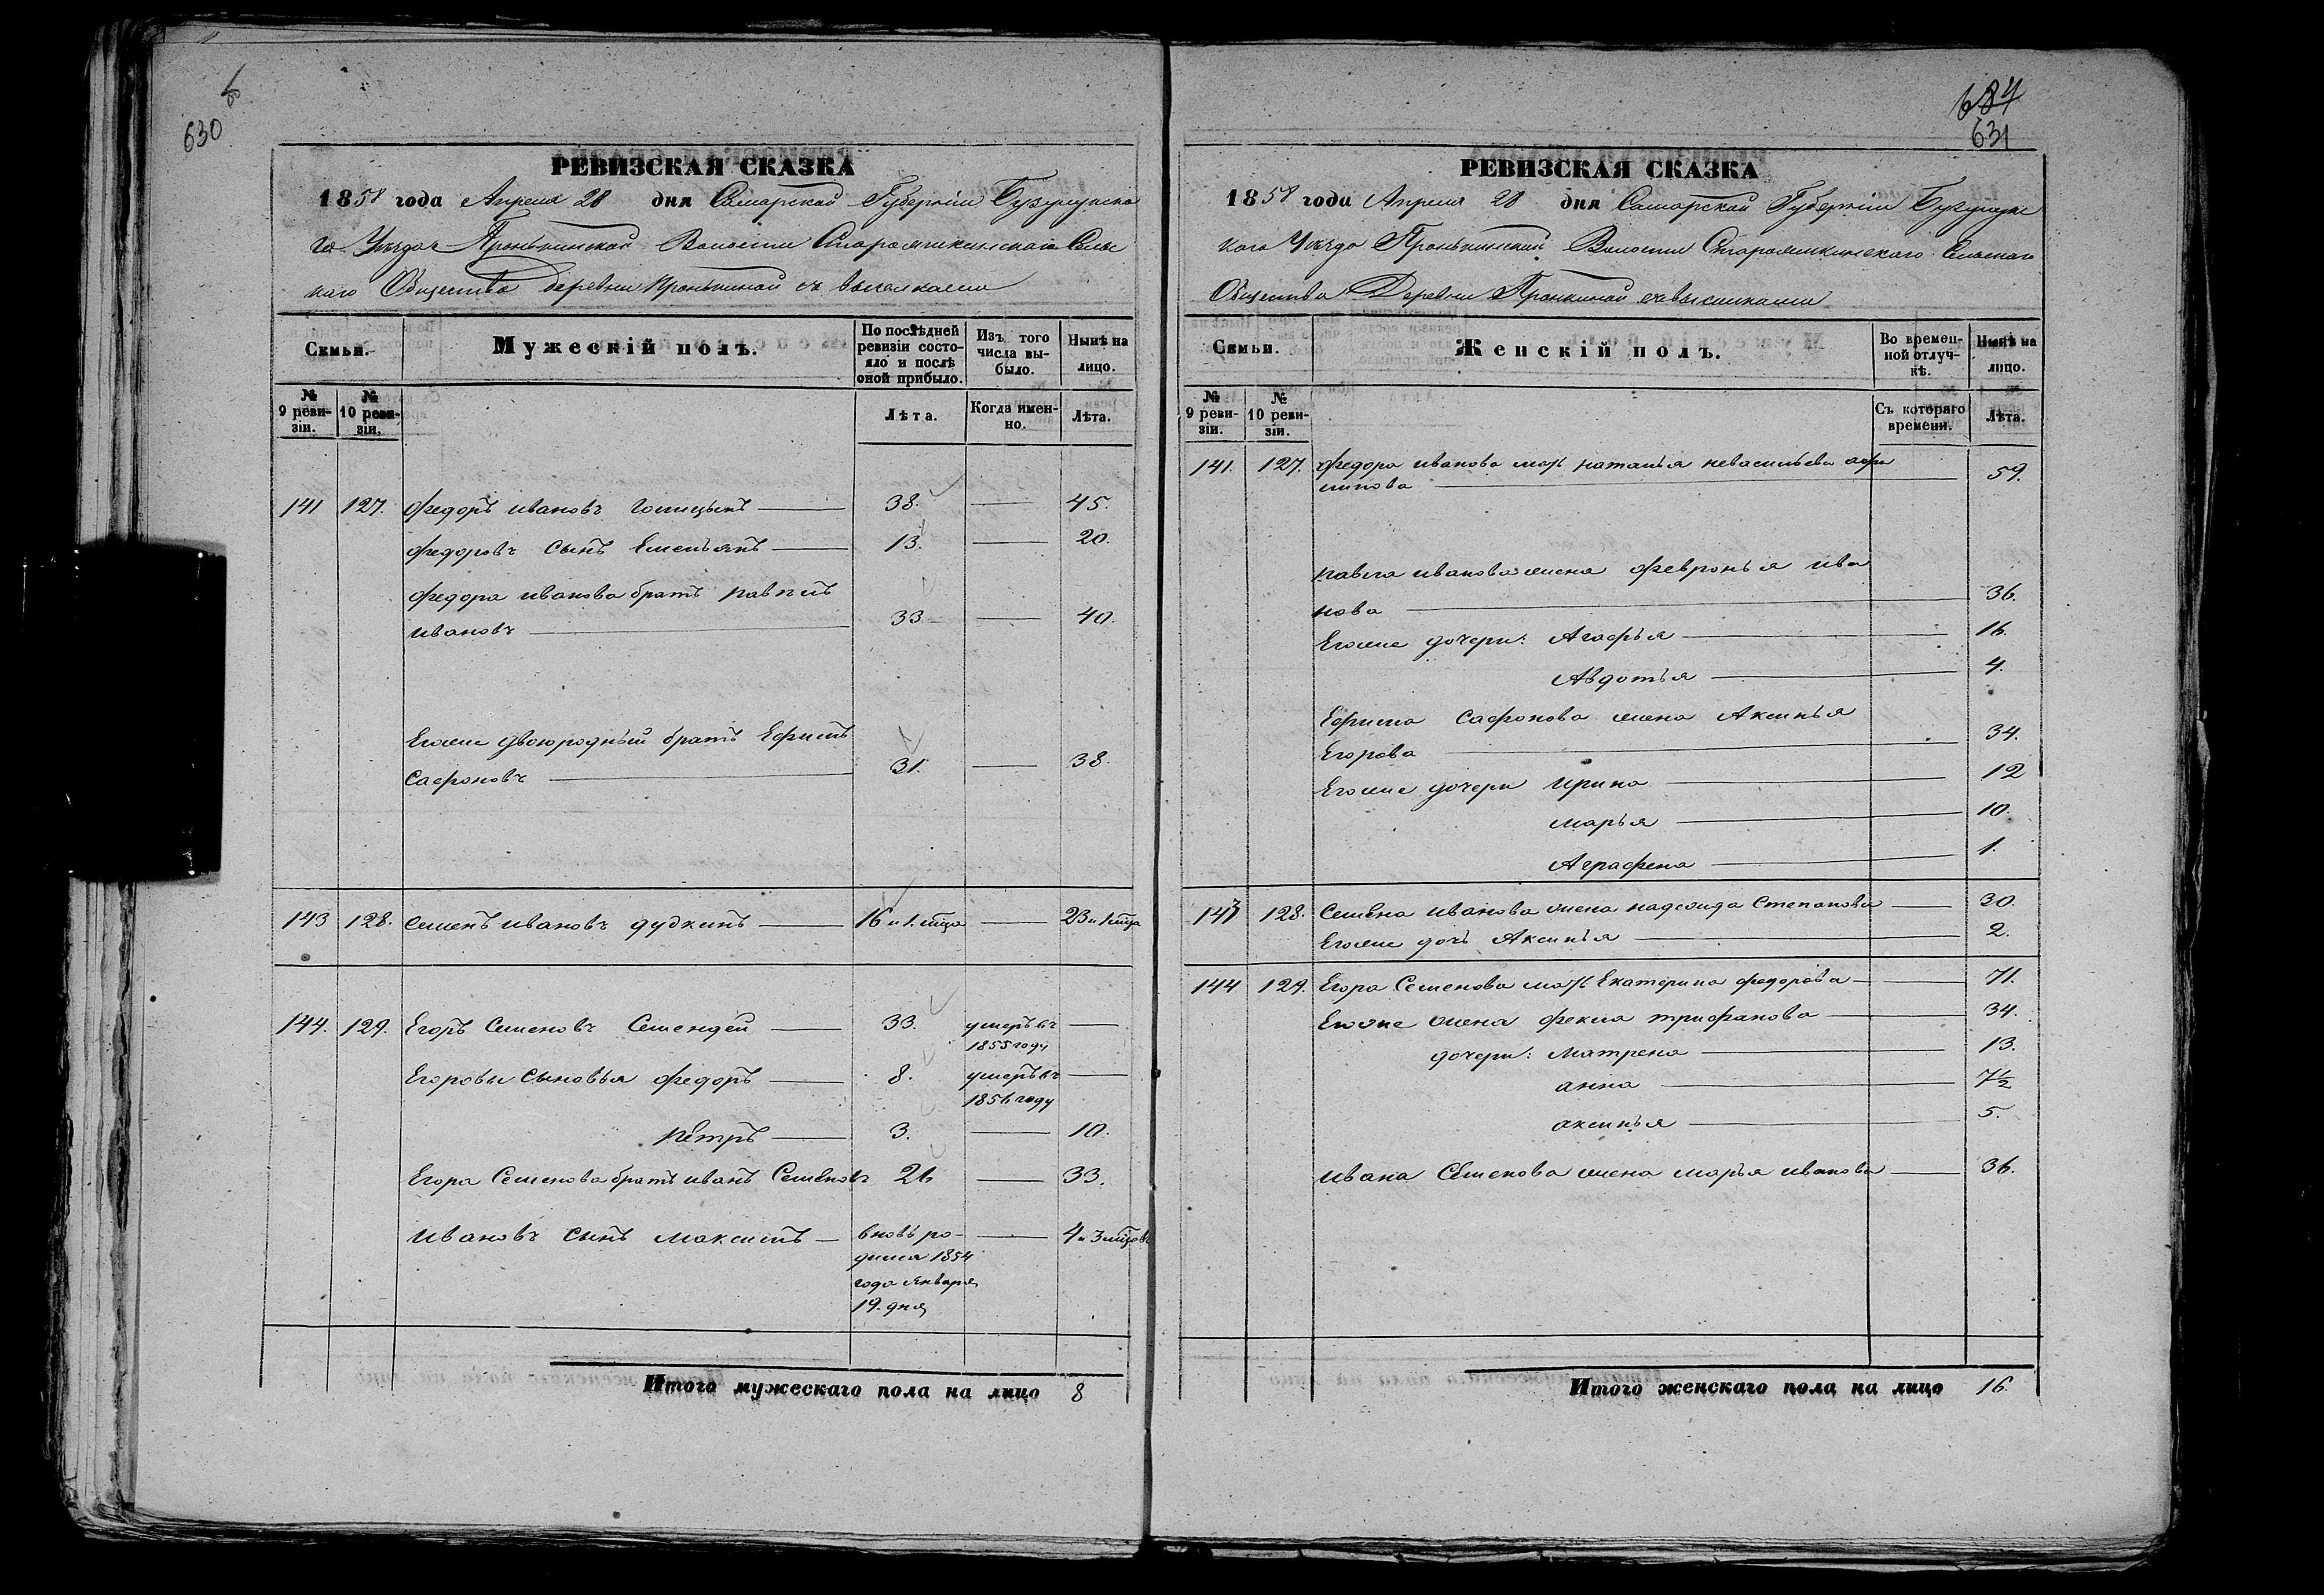 630
РЕВИЗСКАЯ СКАЗКА
1858 года Апреля 28 дня Самарской Губернiи Бузулукска
го Уѣзда Пронькинской Волости Старояшкинскаго Сельс
каго Общества Деревни Пронькиной съ выселками
Семьи.
Мужескій полъ.
По послѣдней ревизіи состояло и послѣ оной прибыло.
Изъ того числа выбыло.
Нынѣ на лицо.
№ 9 ревизіи.
№ 10 ревизіи.
Лѣта.
Когда именно.
Лѣта.
141 127. Федоръ Ивановъ 38. 45.
Федоровъ сынъ Емельянъ 13. 20.
Федора Иванова братъ Павелъ
Ивановъ 33. 40.
Егоже двоюродный братъ Ефимъ
Сафроновъ 31. 38.
143 128. Семенъ Ивановъ Дудкинъ 16 и 1. мца 23 и 1 мца
144. 129. Егоръ Семеновъ Семендей 33. умеръ въ
1855 году
Егоровы сыновья Федоръ 8. умеръ въ
1856 году
Петръ 3. 10.
Егора Семенова братъ Иванъ Семеновъ 26 33.
Ивановъ сынъ Максимъ вновь ро- 4 и 3 мцовъ
дился 1854
года Января
19. дня
Итого мужескаго пола на лицо 8
684
631
РЕВИЗСКАЯ СКАЗКА
1858 года Апреля 28 дня Самарской Губернiи Бузулукс
каго Уѣзда Пронькинской Волости Старояшкинскаго Сельскаго
Общества Деревни Пронькиной съ выселками
Семьи.
Женскій полъ.
Во временной отлучкѣ.
Нынѣ на лицо.
№ 9 ревизіи.
№ 10 ревизіи.
Съ котораго времени.
Лѣта.
141. 127. Федора Иванова мать Наталья
59.
Павла Иванова жена Февронья Ива
нова 36.
Егоже дочери: Агафья 16.
Авдотья 4.
Ефима Сафронова жена Аксинья
Егорова 34.
Егоже дочери Ирина 12
Марья 10.
Аграфена 1.
143 128. Семена Иванова жена Надежда Степанова 30.
Егоже дочь Аксинья 2.
144 129. Егора Семенова мать Екатерина Федорова 71.
Егоже жена Фекла Трифанова 34.
дочери: Матрена 13.
Анна 7½
Аксинья 5.
Ивана Семенова жена Марья Иванова 36.
Итого женскаго пола на лицо 16.